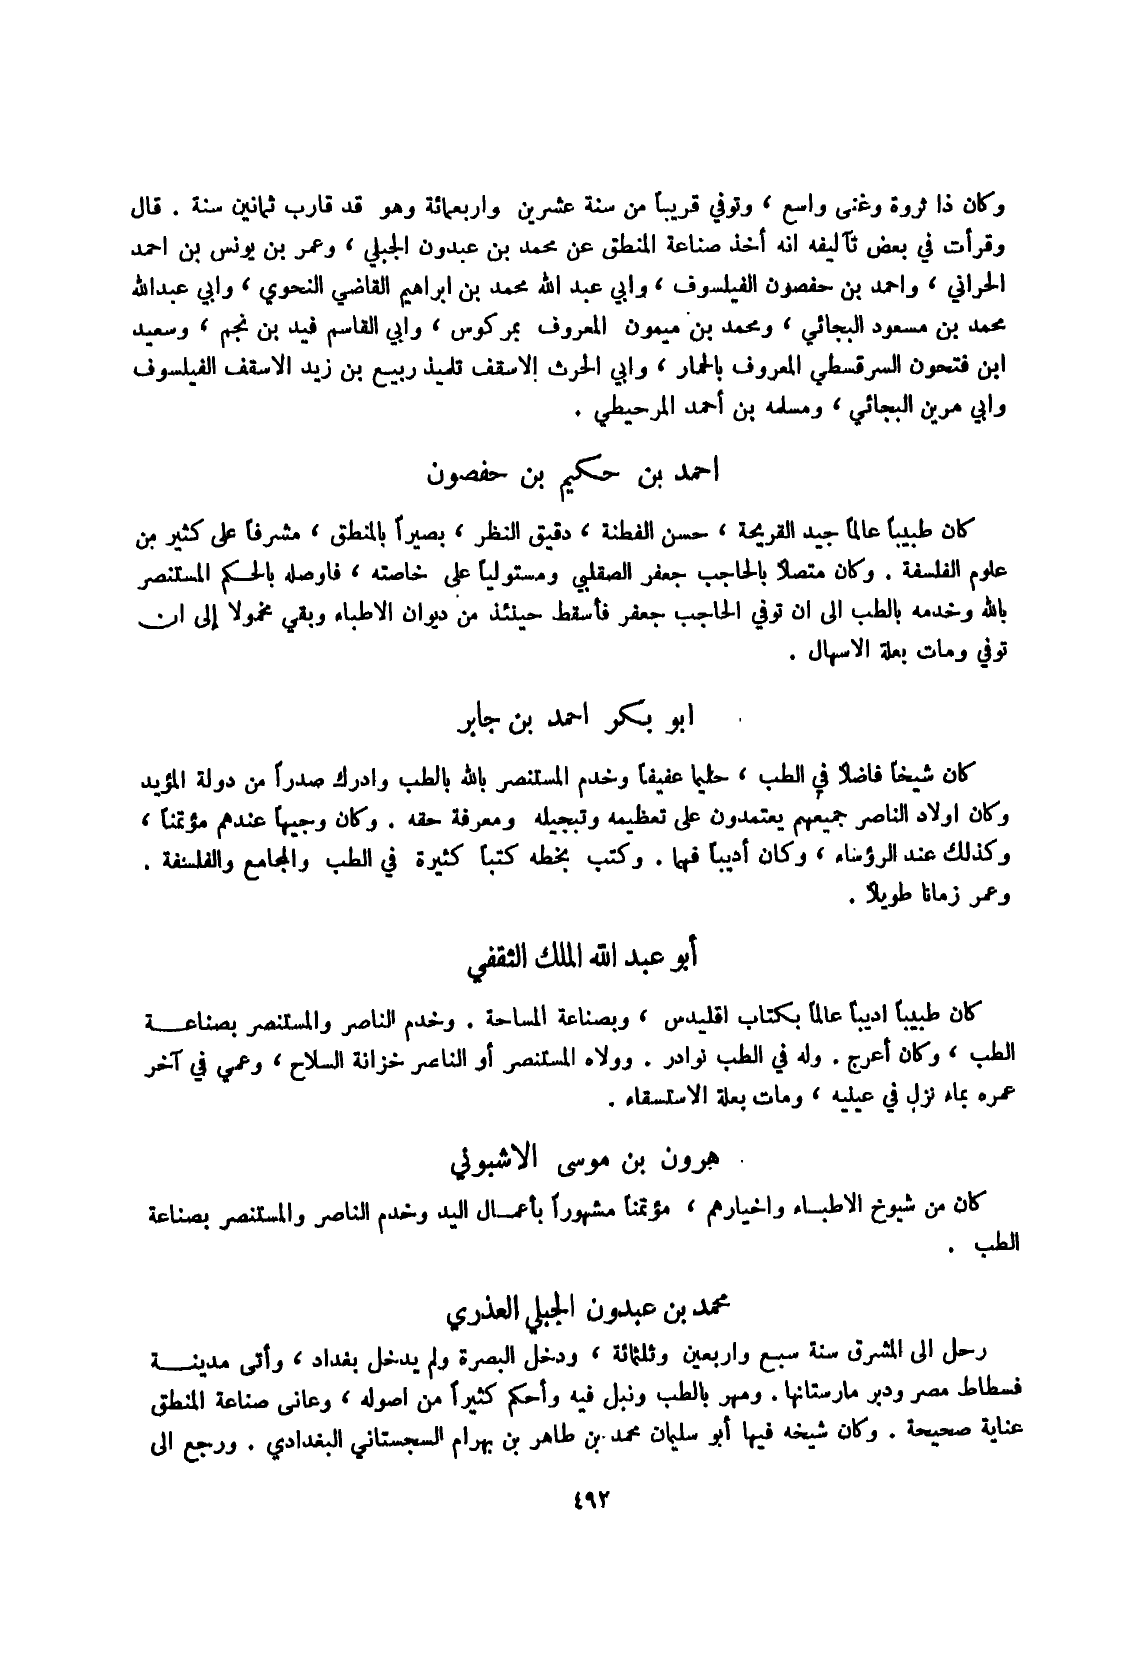 وكان ذا ثروة وغنى واسع ، وتوفي قريباً من سنة عشرين واربعمائة وهو قد قارب ثمانين سنة . قال
وقرأت في بعض تآليفه انه أخذ صناعة المنطق عن محمد بن عبدون الجبلي ، وعمر بن يونس بن احمد
الحراني ، واحمد بن حفصون الفيلسوف ، وابي عبد الله محمد بن ابراهيم القاضي النحوي ، وابي عبدالله
محمد بن مسعود البجائي ، ومحمد بن ميمون المعروف بمركوس ، وابي القاسم فيد بن نجم ، وسعيد
ابن فتحون السرقسطي المعروف بالحمار ، وابي الحرث الاسقف تلميذ ربيع بن زيد الاسقف الفيلسوف
وابي مرين البجائي ، ومسلمه بن أحمد المرحيطي .
احمد بن حكيم بن حفصون
كان طبيباً عالماً جيد القريحة ، حسن الفطنة ، دقيق النظر ، بصيراً بالمنطق ، مشرفاً على كثير من
علوم الفلسفة . وكان متصلاً بالحاجب جعفر الصقلبي ومستولياً على خاصته ، فاوصله بالحكم المستنصر
بالله وخدمه بالطب الى ان توفي الحاجب جعفر فأسقط حينئذ من ديوان الاطباء وبقي مخمولا إلى ان
توفي ومات بعلة الاسهال .
ابو بكر احمد بن جابر
كان شيخاً فاضلاً في الطب ، حليما عفيفاً وخدم المستنصر بالله بالطب وادرك صدراً من دولة المؤيد
وكان اولاد الناصر جميعهم يعتمدون على تعظيمه وتبجيله ومعرفة حقه . وكان وجيهاً عندهم مؤتمناً ،
وكذلك عند الرؤساء ، وكان أديباً فهما . وكتب بخطه كتباً كثيرة في الطب والمجامع والفلسفة .
وعمر زمانا طويلاً .
أبو عبد الله الملك الثقفي
كان طبيباً اديباً عالماً بكتاب اقليدس ، وبصناعة المساحة . وخدم الناصر والمستنصر بصناعة
الطب ، وكان أعرج . وله في الطب نوادر . وولاه المستنصر أو الناصر خزانة السلاح ، وعمي في آخر
عمره بماء نزل في عينيه ، ومات بعلة الاستسقاء .
هرون بن موسى الاشبوني
كان من شيوخ الاطباء واخيارهم ، مؤتمناً مشهوراً بأعمال اليد وخدم الناصر والمستنصر بصناعة
الطب .
محمد بن عبدون الجبلي العذري
رحل الى المشرق سنة سبع واربعين وثلثمائة ، ودخل البصرة ولم يدخل بغداد ، وأتى مدينة
فسطاط مصر ودبر مارستانها . ومهر بالطب ونبل فيه وأحكم كثيراً من اصوله ، وعانى صناعة المنطق
عناية صحيحة . وكان شيخه فيها أبو سليمان محمد بن طاهر بن بهرام السجستاني البغدادي . ورجع الى
٤٩٢